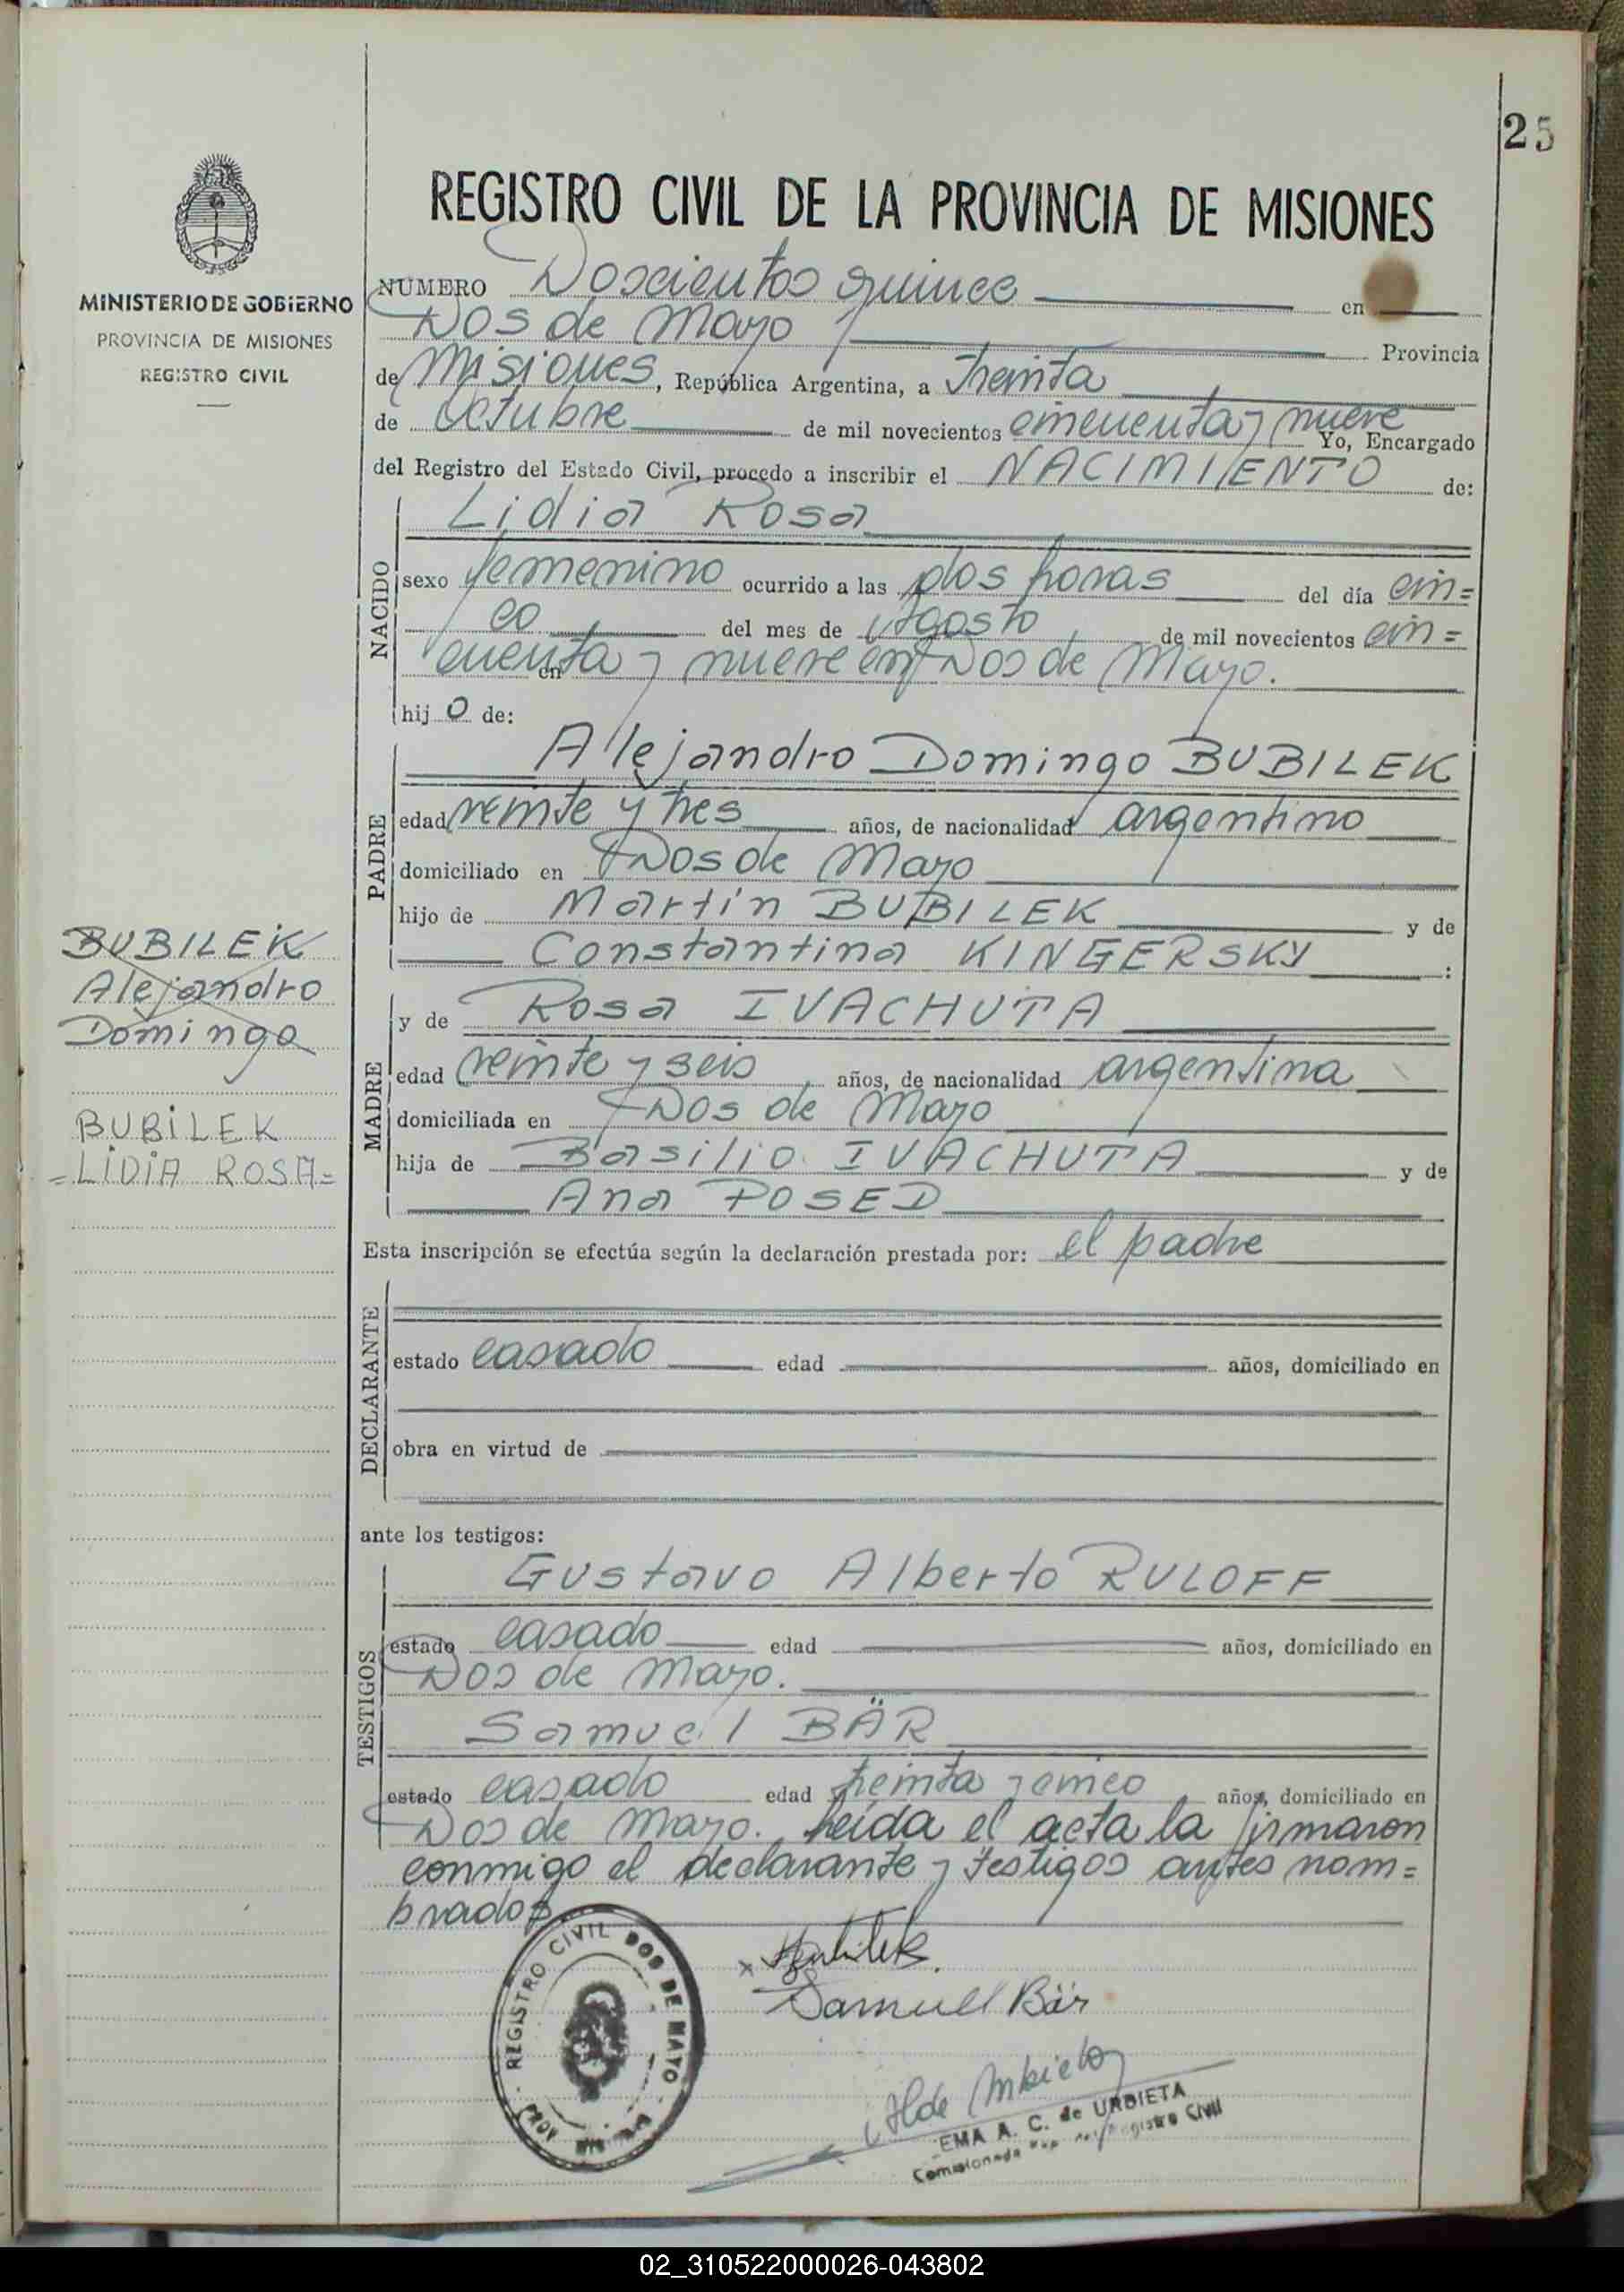 25
REGISTRO CIVIL DE LA PROVINCIA DE MISIONES
MINISTERIO DE GOBIERNO
PROVINCIA DE MISIONES
REGISTRO CIVIL
NUMERO Doscientos quince en
Dos de Mayo Provincia
de Misiones, República Argentina, a treinta
de Octubre de mil novecientos cincuenta y nueve Yo, Encargado
del Registro del Estado Civil, procedo a inscribir el NACIMIENTO de:
NACIDO
Lidia Rosa
sexo femenino ocurrido a las dos horas del día cin=
co del mes de Agosto de mil novecientos cin=
cuenta y nueve en Dos de Mayo.
en
hijo de:
PADRE
Alejandro Domingo BUBILEK
edad veinte y tres años, de nacionalidad argentino
domiciliado en Dos de Mayo
hijo de Martín BUBILEK y de
Constantina KINGERSKY :
BUBILEK
Alejandro
Domingo
BUBILEK
=LIDIA ROSA=
MADRE
y de Rosa IVACHUTA
edad veinte y seis años, de nacionalidad argentina
domiciliada en Dos de Mayo
hija de Basilio IVACHUTA y de
Ana POSED
Esta inscripción se efectúa según la declaración prestada por: el padre
DECLARANTE
estado casado edad años, domiciliado en
obra en virtud de
ante los testigos:
TESTIGOS
Gustavo Alberto RULOFF
estado casado edad años, domiciliado en
Dos de Mayo.
Samuel BÄR
estado casado edad treinta y cinco años, domiciliado en
Dos de Mayo. Leída el acta la firmaron
conmigo el declarante y testigos antes nom=
brados
REGISTRO CIVIL DOS DE MAYO
PROV.
x Bubilek.
Samuel Bär
EMA A. C. de URBIETA
Registro Civil
02_310522000026-043802